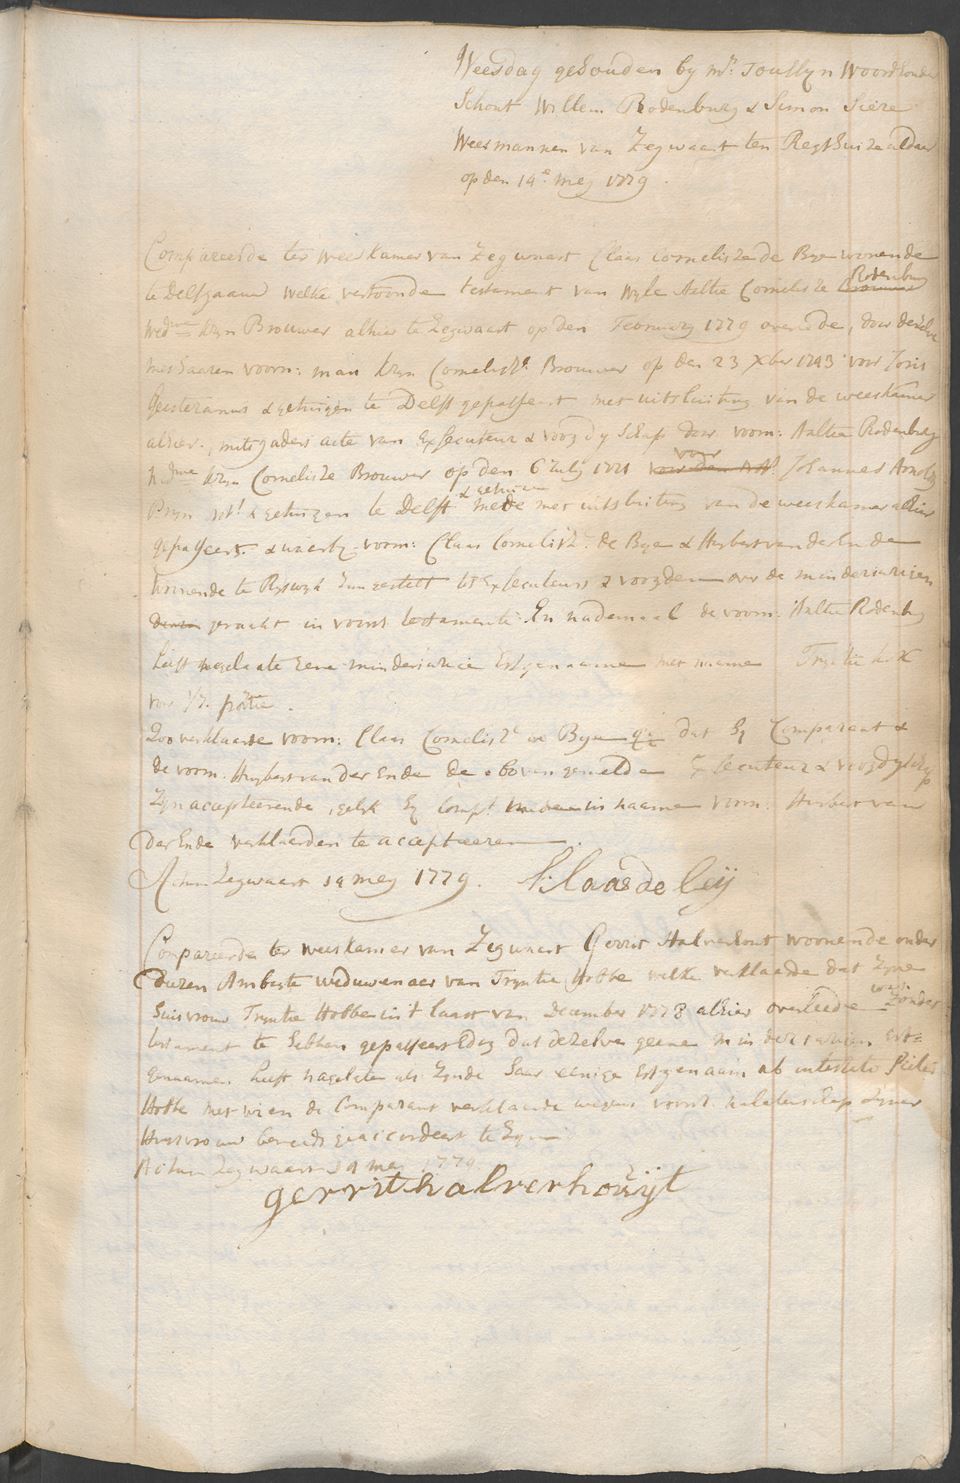 Weesdag gehouden by mr. Joullyn Woordhouder
Schout Willem Rodenburg & Simon Siere
Weesmannen van Zegwaart ten Regthuize aldaar
op den 14e. mey 1779.
Compareerde ter weeskamer van Zegwaart Claas Cornelisze de Bye wonende
te Delfgaauw welke vertoonde testament van wyle Aaltie Cornelisze Rodenburg
wed.we Kryn Brouwer alhier te Zegwaart op den February 1779 overlede, door dezelve
met haaren voorn: man Kryn Cornelisze Brouwer op den 23 xber 1743 voor Joris
Geesteranus & getuigen te Delft gepasseert met uitsluiting van de weeskamer
alhier, mitsgaders acte van Executeur & voogdyschap door voorn: Aaltie Rodenburg
wed.we Kryn Cornelisze Brouwer op den 6 July 1771 voor Johannes
Pryn Not. & getuigen te Delft mede met uitsluiting van de weeskamer alhier
gepasseert & waarby voorn: Claas Cornelisz. de Bye & Huybert van der Ende
wonende te Ryswyk zyn gestelt tot Executeurs & voogden over de minderjarigen
geraakt in voorn testamente En nademaal de voorn: Aaltie Rodenburg
heeft nagelaate eene minderjarige Erfgenaame met naame Tryntie
voor 1/7 portie.
Zoo verklaarde voorn: Claas Cornelisz. de Bye dat hy Comparant &
de voorn: Huybert van der Ende de bovengemelde Executeur & voogdyschap
zyn accepteerende, gelyk hy Compt. in naame voorn: Huybert van
der Ende verklaarden te accepteeren.
Actum Zegwaart 14 mey 1779. Klaas de Beij
Compareerde ter weeskamer van Zegwaart Gerrit Halverhout woonende onder
dezen Ambagte weduwenaer van Tryntie Hobbe welke verklaarde dat zyne
huisvrouw Tryntie Hobbe in 't laast van December 1778 alhier overleede was zonder
testament te hebben gepasseert & dat dezelve geene minderjarigen Erf=
genaamen heeft nagelaten als zynde haar eenige Erfgenaam ab intestato Pieter
Hobbe met wien de Comparant verklaarde wegens voorsz. nalatenschap zyner
Huisvrouw bereids geaccordeert te Zyn
Actum Zegwaart 14 mey 1779
gerrit halverhouijt